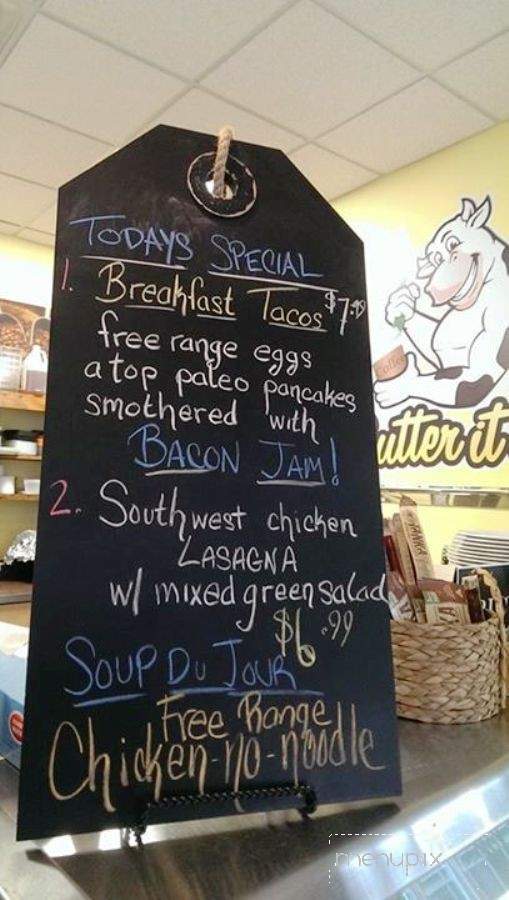 TODAYS SPECIAL
1. Breakfast Tacos $7.49
free range eggs
a top paleo pancakes
smothered with
BACON JAM!
2. Southwest chicken
LASAGNA
w/ mixed green salad
$6.99
SOUP DU JOUR
Free Range
Chicken-no-noodle
Coffee
utter it
TANKA
menupix